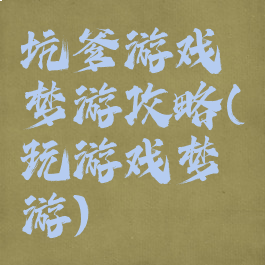 坑爹游戏
梦游攻略(
玩游戏梦
游)